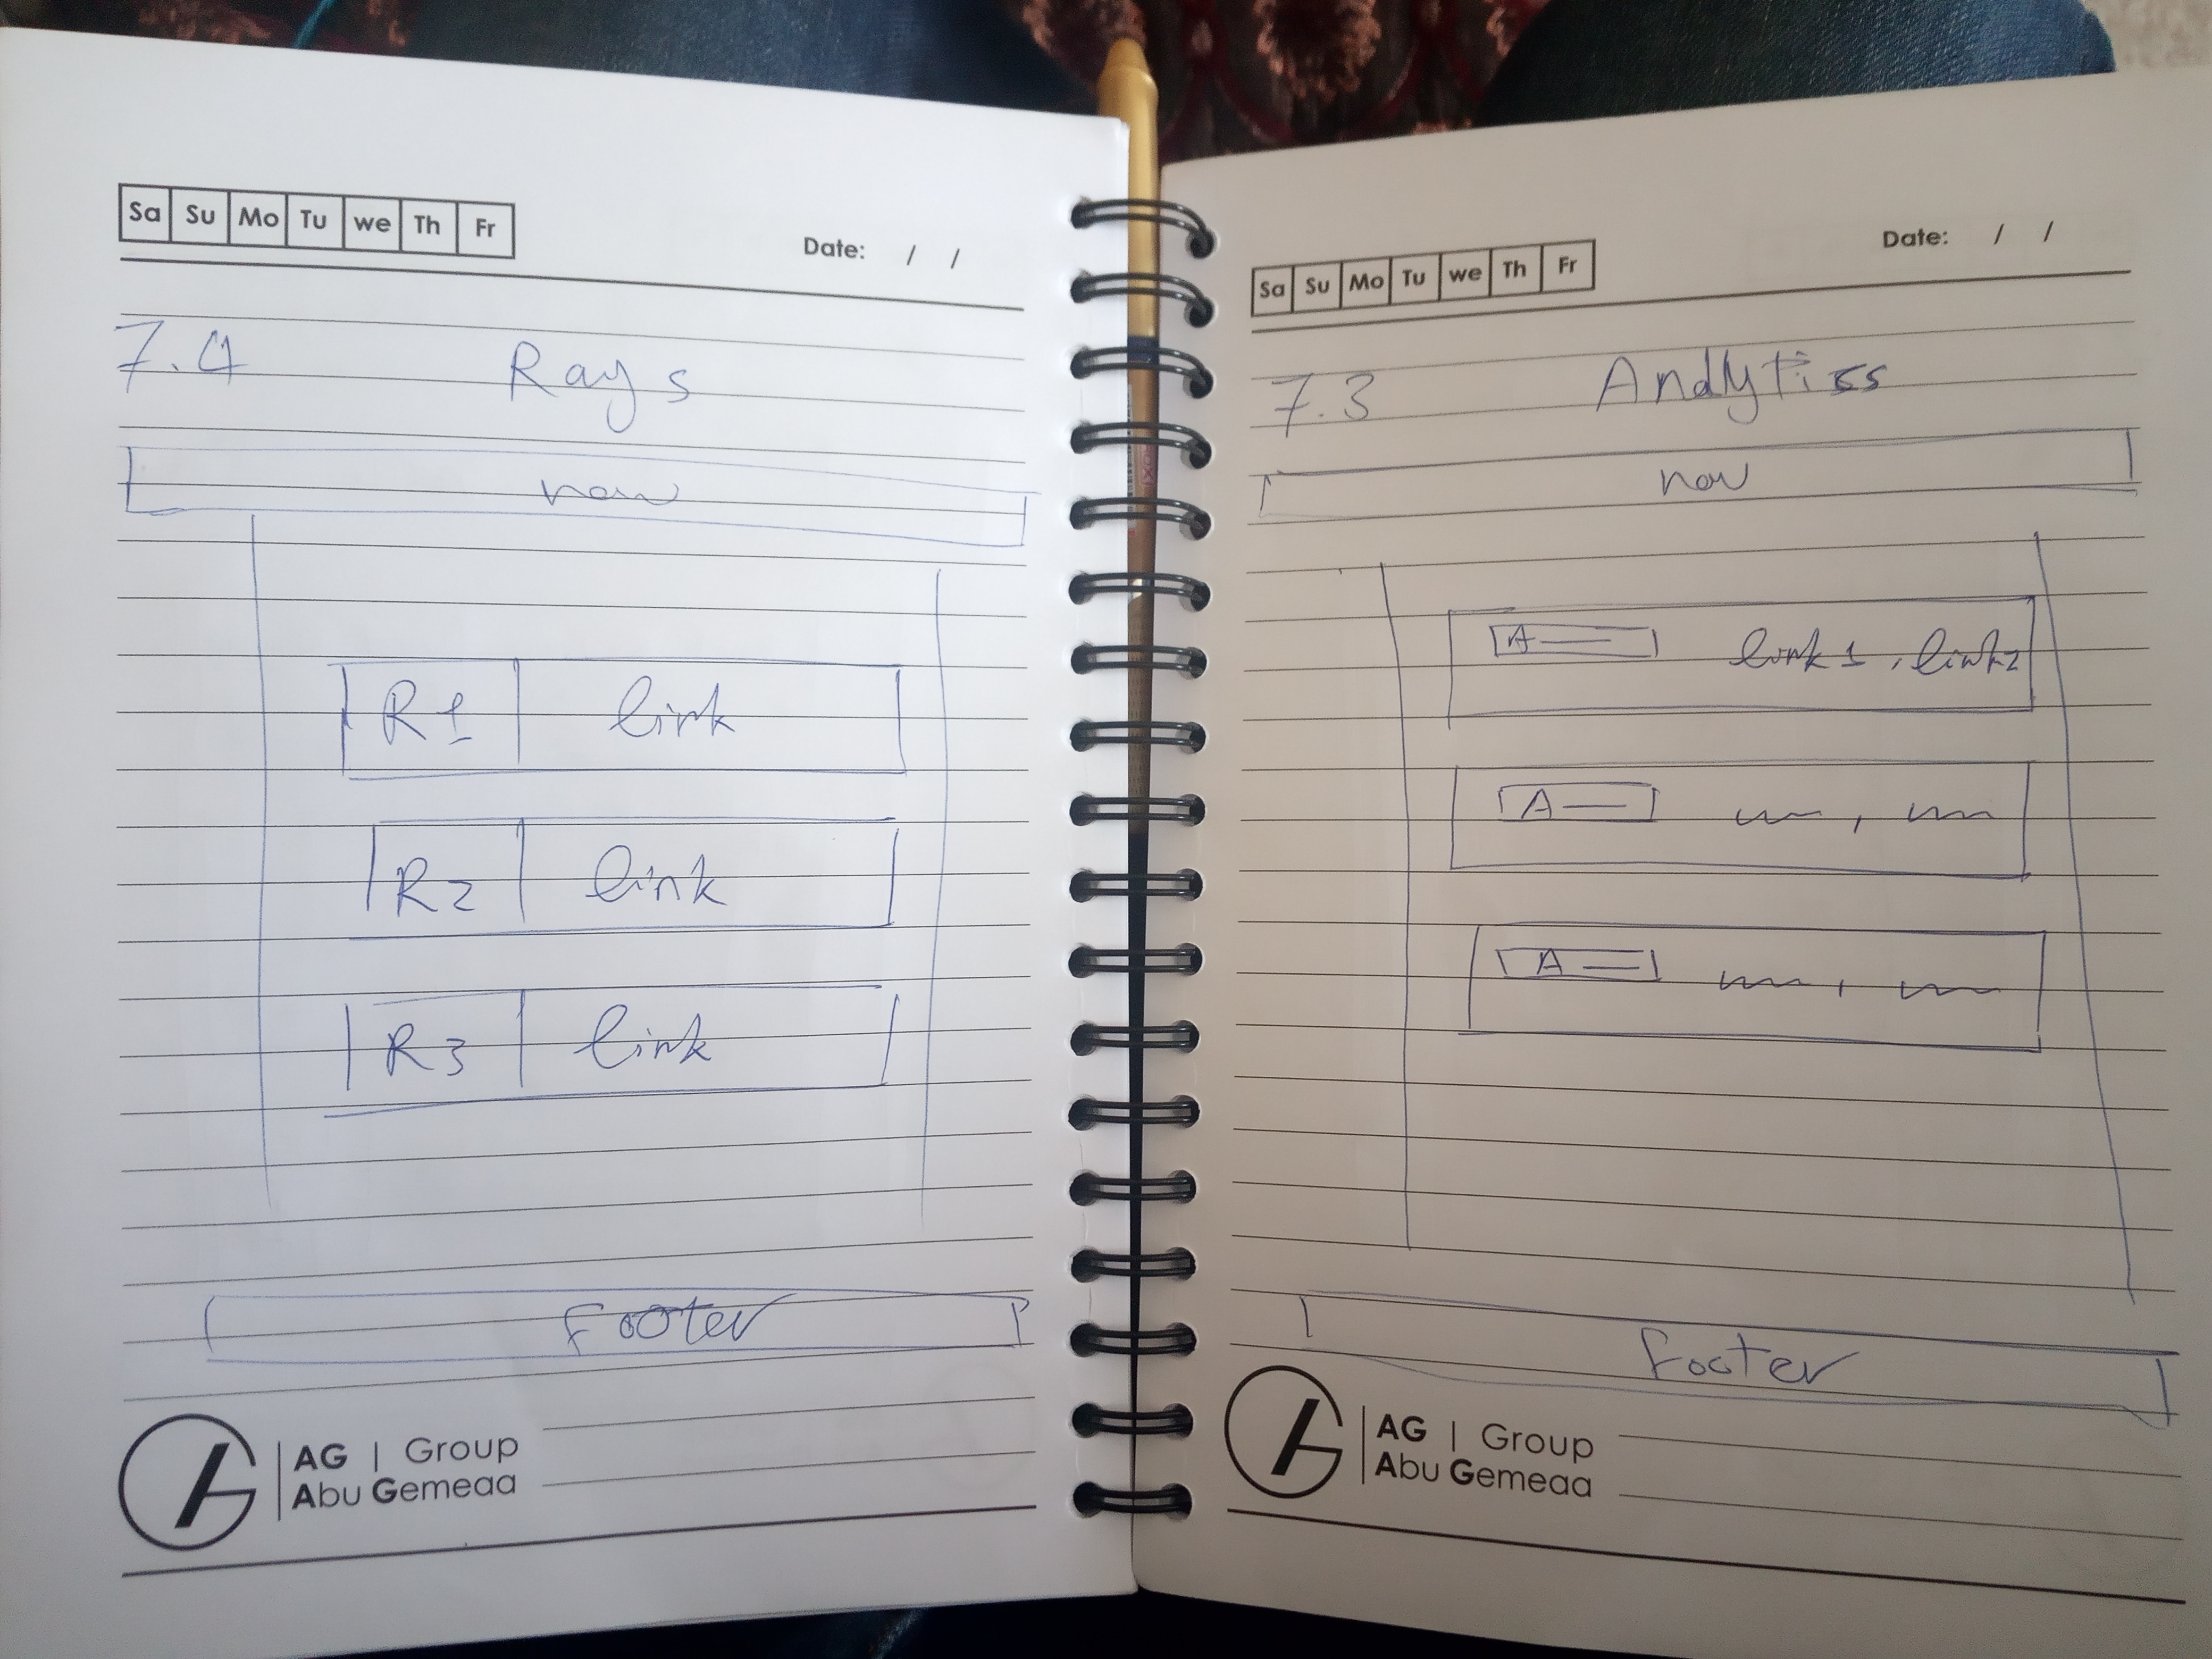 Sa Su Mo Tu we Th Fr
Date: / /
7.4 Rays
nav
R1 link
R2 link
R3 link
Footer
AG | Group
Abu Gemeaa
Sa Su Mo Tu we Th Fr
Date: / /
7.3 Andlytiss
nav
A link1, link2
A
A
Footer
AG | Group
Abu Gemeaa